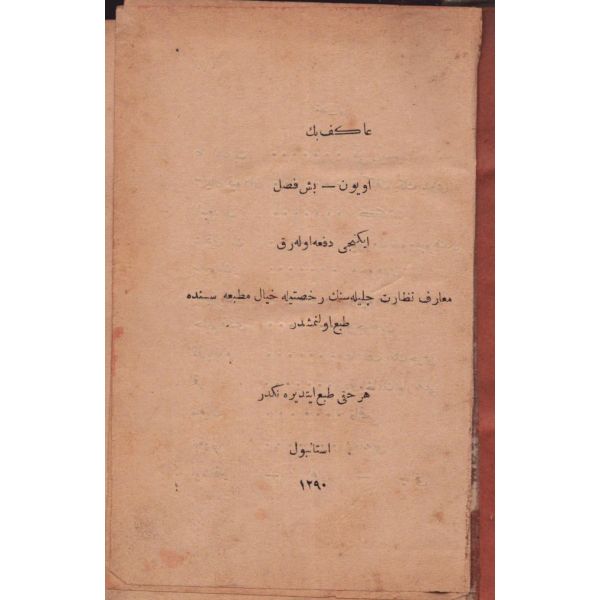 عاكف بك
اويون — بش فصل
ايكنجى دفعه اوله رق
معارف نظارت جليله سنك رخصتيله خيال مطبعه سنده
طبع اولنمشدر
هر حقى طبع ايتديره نكدر
استانبول
١٢٩٠